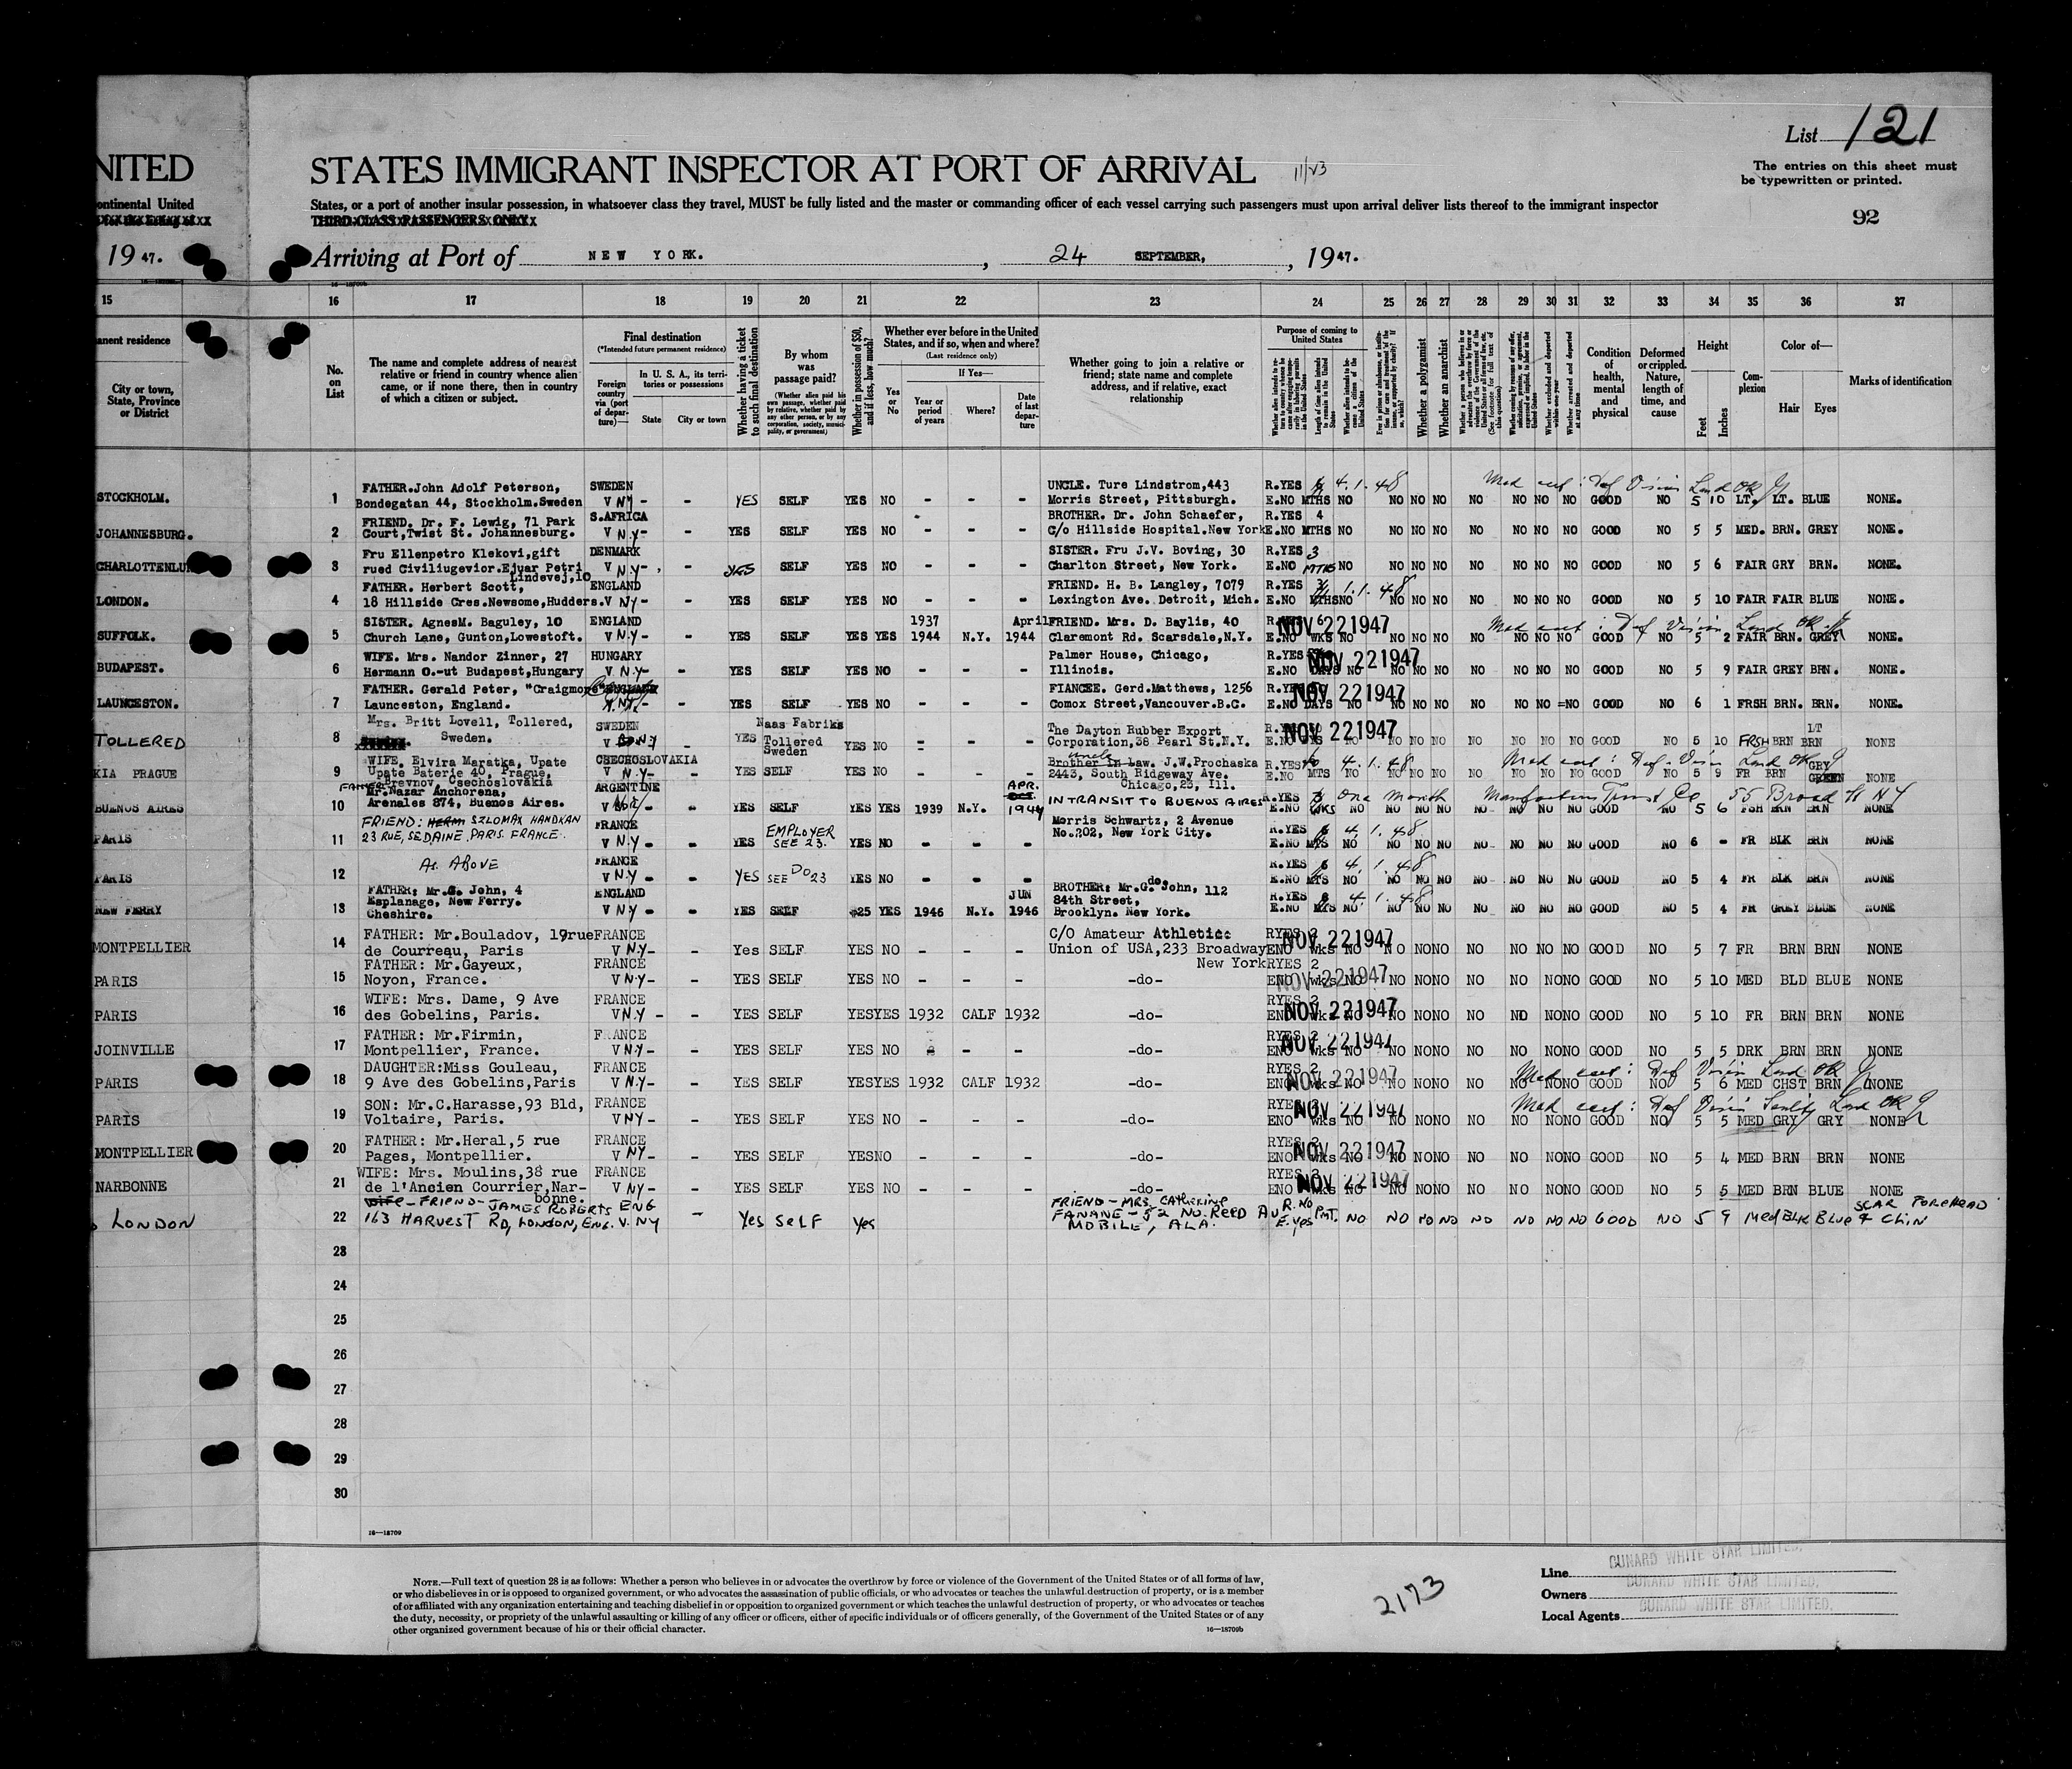 List 121
NITED STATES IMMIGRANT INSPECTOR AT PORT OF ARRIVAL
The entries on this sheet must
be typewritten or printed.
ontinental United States, or a port of another insular possession, in whatsoever class they travel, MUST be fully listed and the master or commanding officer of each vessel carrying such passengers must upon arrival deliver lists thereof to the immigrant inspector
THIRD-CLASS PASSENGERS ONLY
92
19 47. Arriving at Port of NEW YORK. , 24 SEPTEMBER, , 19 47.
15 16 17 18 19 20 21 22 23 24 25 26 27 28 29 30 31 32 33 34 35 36 37
anent residence
City or town,
State, Province
or District
No.
on
List
The name and complete address of nearest
relative or friend in country whence alien
came, or if none there, then in country
of which a citizen or subject.
Final destination
(*Intended future permanent residence)
Foreign
country
via (port
of depar-
ture)—
In U. S. A., its terri-
tories or possessions
State City or town
Whether having a ticket
to such final destination
By whom
was
passage paid?
(Whether alien paid his
own passage, whether paid
by relative, whether paid by
any other person, or by any
corporation, society, munici-
pality, or government)
Whether in possession of $50,
and if less, how much?
Whether ever before in the United
States, and if so, when and where?
(Last residence only)
Yes
or
No
If Yes—
Year or
period
of years
Where?
Date
of last
depar-
ture
Whether going to join a relative or
friend; state name and complete
address, and if relative, exact
relationship
Purpose of coming to
United States
Whether a polygamist
Whether an anarchist
Condition
of
health,
mental
and
physical
Deformed
or crippled.
Nature,
length of
time, and
cause
Height
Feet Inches
Com-
plexion
Color of—
Hair Eyes
Marks of identification
STOCKHOLM. 1 FATHER.John Adolf Peterson, SWEDEN UNCLE. Ture Lindstrom,443 R.YES 4.1.48
Bondegatan 44, Stockholm.Sweden V NY - - YES SELF YES NO - - - Morris Street, Pittsburgh. E.NO MTHS NO NO NO NO NO NO NO NO GOOD NO 5 10 LT. LT. BLUE NONE.
JOHANNESBURG. 2 FRIEND. Dr. F. Lewig, 71 Park S.AFRICA BROTHER. Dr. John Schaefer, R.YES 4
Court,Twist St. Johannesburg. V N.Y- - YES SELF YES NO - - - C/o Hillside Hospital.New York E.NO MTHS NO NO NO NO NO NO NO NO GOOD NO 5 5 MED. BRN. GREY NONE.
3 Fru Ellenpetro Klekovi,gift DENMARK SISTER. Fru J.V. Boving, 30 R.YES 3
CHARLOTTENLU rued Civiliugevior.Ejvar Petri V N.Y- - YES SELF YES NO - - - Charlton Street, New York. E.NO MTHS NO NO NO NO NO NO NO NO GOOD NO 5 6 FAIR GRY BRN. NONE.
Lindevej,10
LONDON. 4 FATHER. Herbert Scott, ENGLAND FRIEND. H. B. Langley, 7079 R.YES 1.1.48
18 Hillside Cres.Newsome,Hudders. V NY- - YES SELF YES NO - - - Lexington Ave. Detroit, Mich. E.NO MTHS NO NO NO NO NO NO NO NO GOOD NO 5 10 FAIR FAIR BLUE NONE.
SUFFOLK. 5 SISTER. AgnesM. Baguley, 10 ENGLAND 1937 April FRIEND. Mrs. D. Baylis, 40 NOV 22 1947
Church Lane, Gunton,Lowestoft. V N.Y- - YES SELF YES YES 1944 N.Y. 1944 Claremont Rd. Scarsdale,N.Y. E.NO WKS NO NO NO NO NO NO NO NO GOOD NO 5 2 FAIR BRN. GREY NONE.
BUDAPEST. 6 WIFE. Mrs. Nandor Zinner, 27 HUNGARY Palmer House, Chicago, R.YES NOV 22 1947
Hermann O.-ut Budapest,Hungary V N.Y- - YES SELF YES NO - - - Illinois. E.NO DAYS NO NO NO NO NO NO NO NO GOOD NO 5 9 FAIR GREY BRN. NONE.
LAUNCESTON. 7 FATHER. Gerald Peter, "Craigmore" FIANCEE. Gerd.Matthews, 1256 R.YES NOV 22 1947
Launceston, England. - YES SELF YES NO - - - Comox Street,Vancouver.B.C. E.NO DAYS NO NO NO NO NO NO NO NO GOOD NO 6 1 FRSH BRN. BRN. NONE.
TOLLERED 8 Mrs. Britt Lovell, Tollered, SWEDEN Naas Fabriks The Dayton Rubber Export NOV 22 1947 LT
Sweden. V N.Y - YES Tollered Sweden YES NO - - - Corporation,38 Pearl St.N.Y. E.NO NO NO NO NO NO NO NO NO GOOD NO 5 10 FRSH BRN BRN NONE
KIA PRAGUE 9 WIFE. Elvira Maratka, Upate CZECHOSLOVAKIA Uncle Brother in Law. J.W.Prochaska R.YES 4.1.48
Upate Baterie 40, Prague, V N.Y- - YES SELF YES NO - - - 2443, South Ridgeway Ave. E.NO MTS NO NO NO NO NO NO NO NO GOOD NO 5 9 FR BRN GRY NONE
Brevnov, Czechoslovakia Chicago,23, Ill.
BUENOS AIRES 10 FATHER Mr.Nazar Anchorena, ARGENTINE APR. IN TRANSIT TO BUENOS AIRES R.YES One month Manufacturers Trust Co 55 Broad St NY
Arenales 874, Buenos Aires. V - YES SELF YES YES 1939 N.Y. 1944 E.NO WKS NO NO NO NO NO NO NO NO GOOD NO 5 6 FSH BRN BRN NONE
PARIS 11 FRIEND: SZLOMAX HANDKAN FRANCE EMPLOYER Morris Schwartz, 2 Avenue R.YES 4.1.48
23 RUE, SEDAINE, PARIS. FRANCE. V N.Y - - YES SEE 23. YES NO - - - No.202, New York City. E.NO MTS NO NO NO NO NO NO NO NO GOOD NO 6 - FR BLK BRN NONE
PARIS 12 As ABOVE FRANCE R.YES 4.1.48
V N.Y - - YES SEE DO 23 YES NO - - - do. E.NO MTS NO NO NO NO NO NO NO NO GOOD NO 5 4 FR BLK BRN NONE
NEW FERRY 13 FATHER: Mr.G. John, 4 ENGLAND JUN BROTHER: Mr.G. John, 112 R.YES 4.1.48
Esplanage, New Ferry. 84th Street,
Cheshire. V NY - - YES SELF 25 YES 1946 N.Y. 1946 Brooklyn. New York. E.NO MTS NO NO NO NO NO NO NO NO GOOD NO 5 4 FR GREY BLUE NONE
MONTPELLIER 14 FATHER: Mr.Bouladov, 19rue FRANCE C/O Amateur Athletic RYES 2 NOV 22 1947
de Courreau, Paris V N.Y- - Yes SELF YES NO - - - Union of USA,233 Broadway ENO wks NO NO NONO NO NO NO NO GOOD NO 5 7 FR BRN BRN NONE
New York
PARIS 15 FATHER: Mr.Gayeux, FRANCE RYES 2 NOV 22 1947
Noyon, France. V N.Y- - YES SELF YES NO - - - -do- ENO wks NO NO NONO NO NO NONO GOOD NO 5 10 MED BLD BLUE NONE
PARIS 16 WIFE: Mrs. Dame, 9 Ave FRANCE RYES 2 NOV 22 1947
des Gobelins, Paris. V N.Y - - YES SELF YESYES 1932 CALF 1932 -do- ENO wks NO NO NONO NO NO NONO GOOD NO 5 10 FR BRN BRN NONE
JOINVILLE 17 FATHER: Mr.Firmin, FRANCE RYES 2 NOV 22 1947
Montpellier, France. V N.Y- - YES SELF YES NO - - - -do- ENO wks NO NO NONO NO NO NONO GOOD NO 5 5 DRK BRN BRN NONE
PARIS 18 DAUGHTER:Miss Gouleau, FRANCE RYES 2 NOV 22 1947
9 Ave des Gobelins,Paris V N.Y- - YES SELF YESYES 1932 CALF 1932 -do- ENO wks NO NO NONO NO NO NONO GOOD NO 5 6 MED CHST BRN NONE
PARIS 19 SON: Mr.C.Harasse,93 Bld, FRANCE RYES NOV 22 1947
Voltaire, Paris. V NY- - YES SELF YES NO - - - -do- ENO wks NO NO NONO NO NO NONO GOOD NO 5 5 MED GRY GRY NONE
MONTPELLIER 20 FATHER: Mr.Heral,5 rue FRANCE RYES 2 NOV 22 1947
Pages, Montpellier. V NY- - YES SELF YESNO - - - -do- ENO wks NO NO NONO NO NO NONO GOOD NO 5 4 MED BRN BRN NONE
NARBONNE 21 WIFE: Mrs. Moulins,38 rue FRANCE RYES 2 NOV 22 1947
de l'Ancien Courrier,Nar- V NY- - YES SELF YES NO - - - -do- ENO wks NO NO NONO NO NO NONO GOOD NO 5 5 MED BRN BLUE NONE
bonne.
LONDON 22 FRIEND - JAMES ROBERTS ENG FRIEND - MRS. CATHERINE R. NO SCAR FOREHEAD
163 HARVEST RD, LONDON, ENG. V. NY - Yes SELF Yes FANANE - 52 NO. REED AV E. yes Pmt. NO NO NO NO NO NO NO NO GOOD NO 5 9 Med BLK Blue & CHIN
MOBILE, ALA.
23
24
25
26
27
28
29
30
16—18709
NOTE.—Full text of question 28 is as follows: Whether a person who believes in or advocates the overthrow by force or violence of the Government of the United States or of all forms of law,
or who disbelieves in or is opposed to organized government, or who advocates the assassination of public officials, or who advocates or teaches the unlawful destruction of property, or is a member
of or affiliated with any organization entertaining and teaching disbelief in or opposition to organized government or which teaches the unlawful destruction of property, or who advocates or teaches
the duty, necessity, or propriety of the unlawful assaulting or killing of any officer or officers, either of specific individuals or of officers generally, of the Government of the United States or of any
other organized government because of his or their official character.
16—18709b
2173
Line CUNARD WHITE STAR LIMITED.
Owners CUNARD WHITE STAR LIMITED.
Local Agents CUNARD WHITE STAR LIMITED.